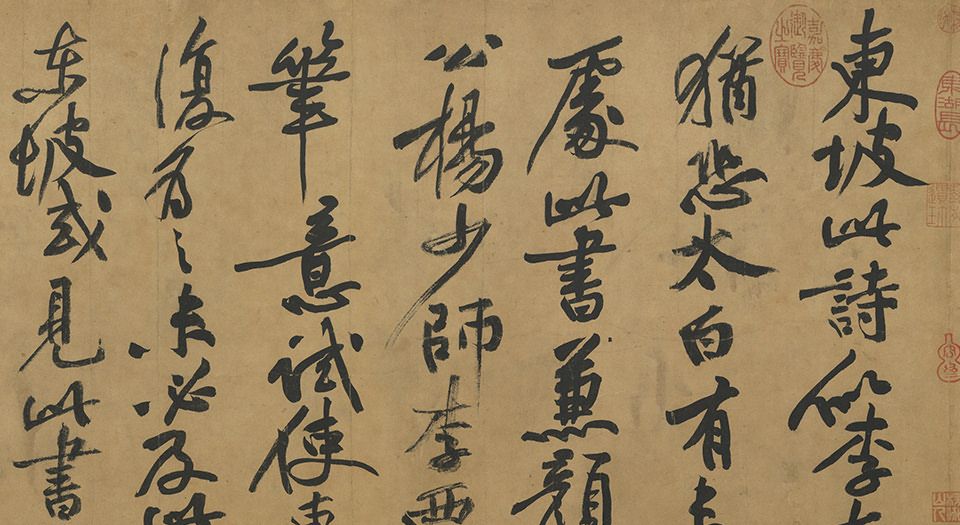 東坡此詩似李太
猶恐太白有未
處此書兼顏
公楊少師李西
筆意試使東
復為之未必及此
東坡或見此書
嘉慶御覽之寶